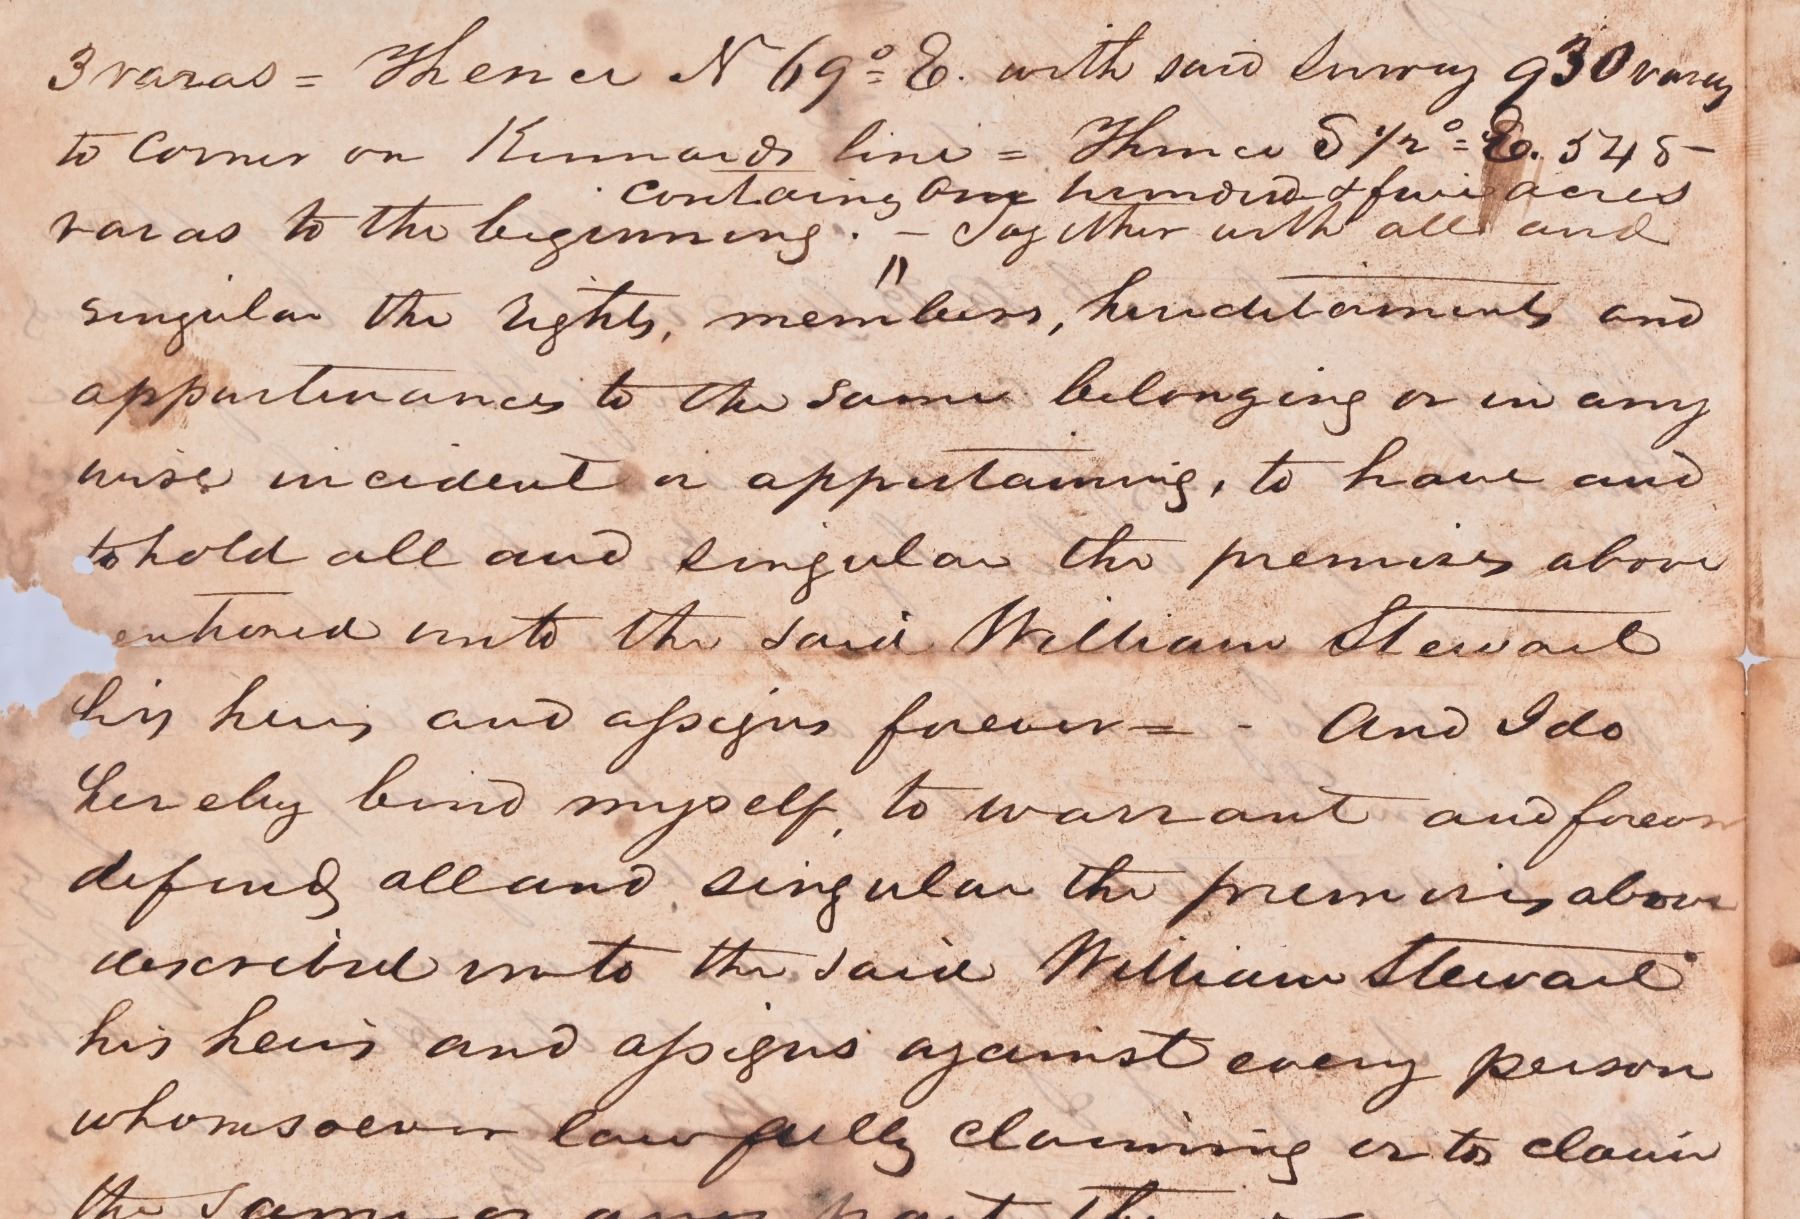 3 varas = Thence N 69° = E. with said Survey 930 varas
to Corner on Kinnards line = Thence S 1/2° = E. 545
containing One hundred & five acres
varas to the beginning. - Together with all and
singular the rights, members, hereditaments and
appurtenances to the same belonging or in any
wise incident or appertaining, to have and
to hold all and singular the premises above
entioned unto the said William Stewart
his heirs and assigns forever = - And I do
hereby bind myself, to warrant and forever
defend, all and singular the premises above
described unto the said William Stewart
his heirs and assigns against every person
whomsoever lawfully claiming or to claim
the same or any part the